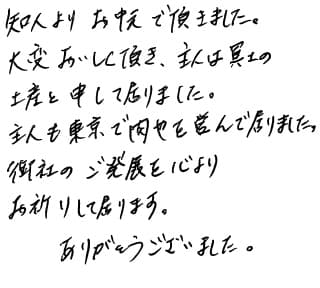 知人より お中元で頂きました。
大変おいしく頂き、主人は冥土の
土産と申して居りました。
主人も東京で肉やを営んで居りました。
御社の ご発展を心より
お祈りして居ります。
ありがとうございました。